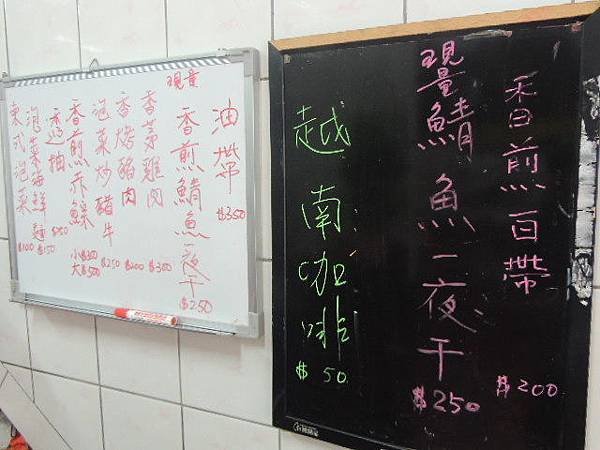 油帶 $350
現量
香煎鯖魚一夜干 $250
香茅雞肉 $300
香烤豬肉 $200
泡菜炒豬牛 $250
香煎赤鯮 小$300 大$500
透抽
泡菜海鮮麵 $150
式泡菜 $100
香煎百帶 $200
現量鯖魚一夜干 $250
越南咖啡 $50